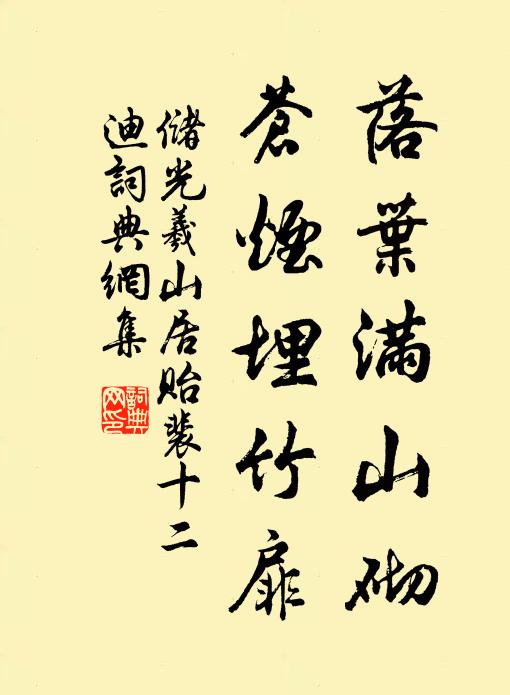 落葉滿山砌
蒼煙埋竹扉
儲光羲山居貽裴十二
迪詞典網集
詞典網印